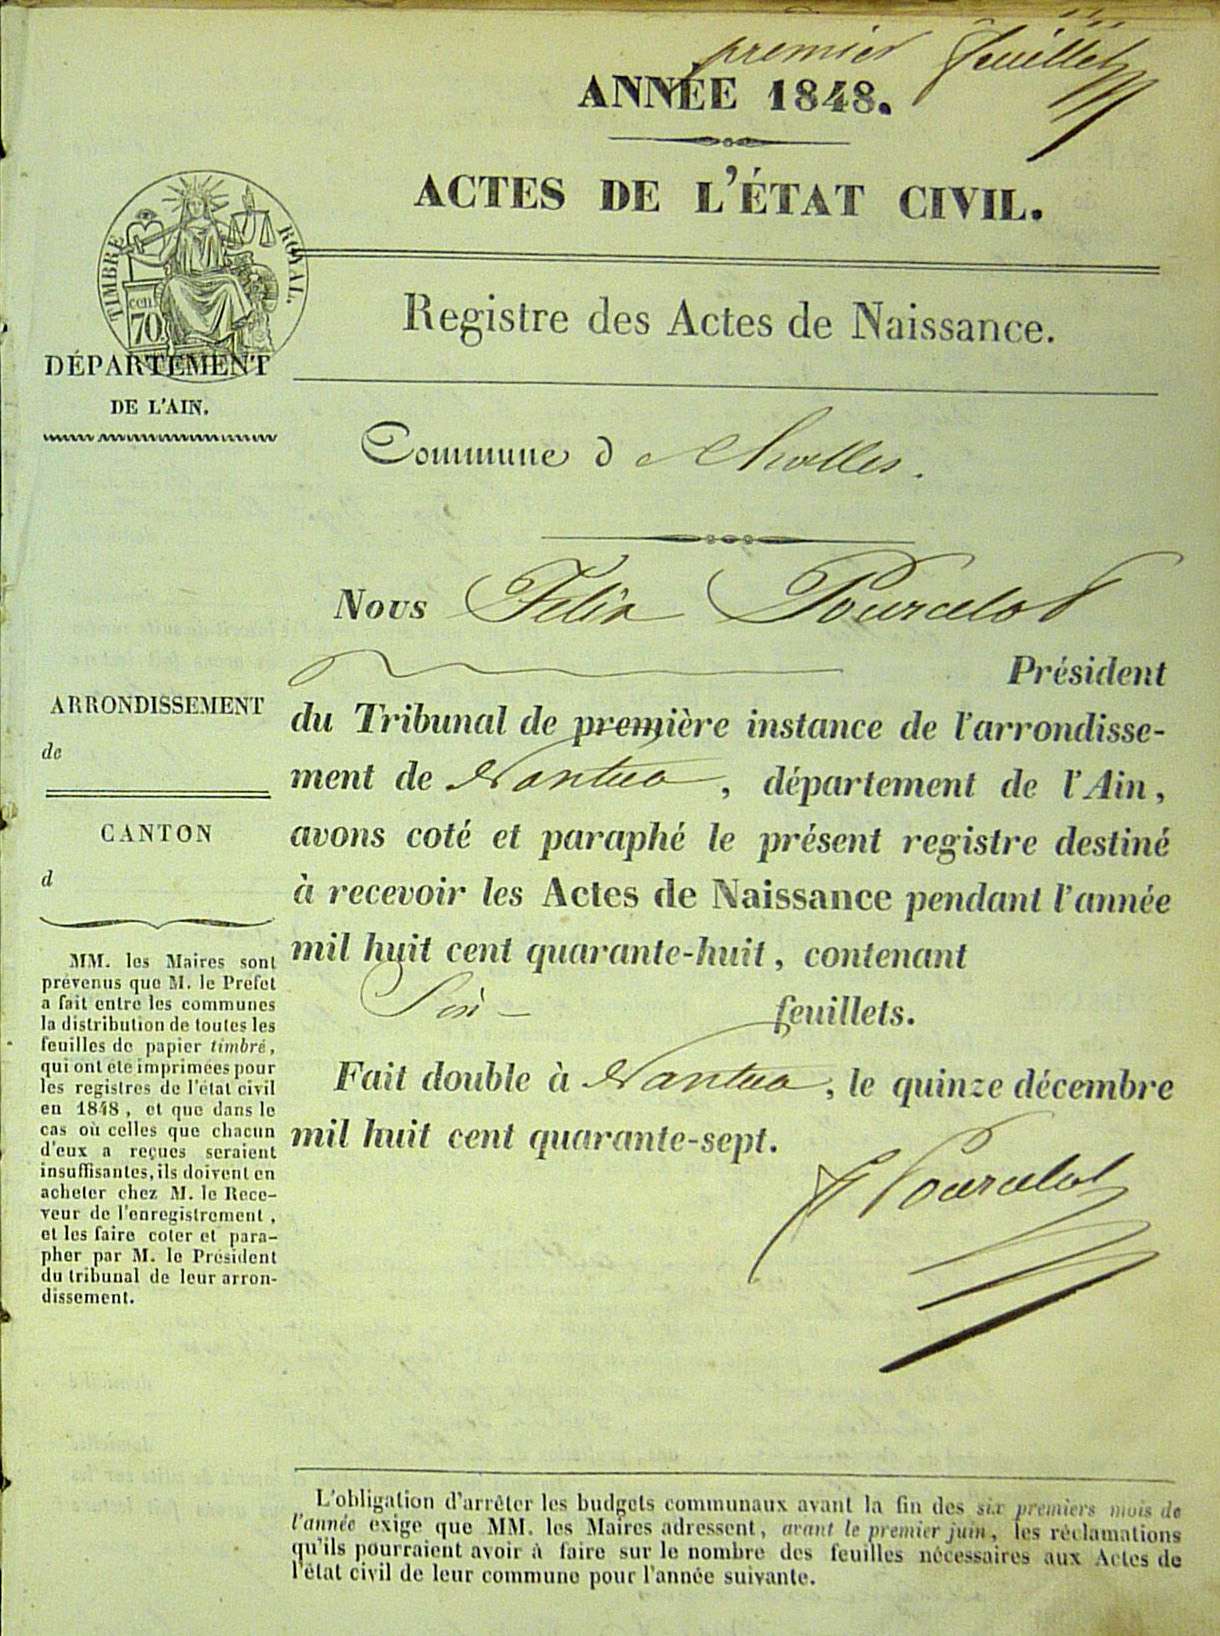 premier feuillet
ANNÉE 1848.
ACTES DE L'ÉTAT CIVIL.
TIMBRE ROYAL.
cen.
70
Registre des Actes de Naissance.
DÉPARTEMENT
DE L'AIN.
Commune d
Nous Felix Pourcelot
Président
du Tribunal de première instance de l'arrondisse-
ment de Nantua, département de l'Ain,
avons coté et paraphé le présent registre destiné
à recevoir les Actes de Naissance pendant l'année
mil huit cent quarante-huit, contenant
Six - feuillets.
Fait double à Nantua, le quinze décembre
mil huit cent quarante-sept.
F Pourcelot
ARRONDISSEMENT
de
CANTON
d
MM. les Maires sont
prévenus que M. le Préfet
a fait entre les communes
la distribution de toutes les
feuilles de papier timbré,
qui ont été imprimées pour
les registres de l'état civil
en 1848, et que dans le
cas où celles que chacun
d'eux a reçues seraient
insuffisantes, ils doivent en
acheter chez M. le Rece-
veur de l'enregistrement,
et les faire coter et para-
pher par M. le Président
du tribunal de leur arron-
dissement.
L'obligation d'arrêter les budgets communaux avant la fin des six premiers mois de
l'année exige que MM. les Maires adressent, avant le premier juin, les réclamations
qu'ils pourraient avoir à faire sur le nombre des feuilles nécessaires aux Actes de
l'état civil de leur commune pour l'année suivante.